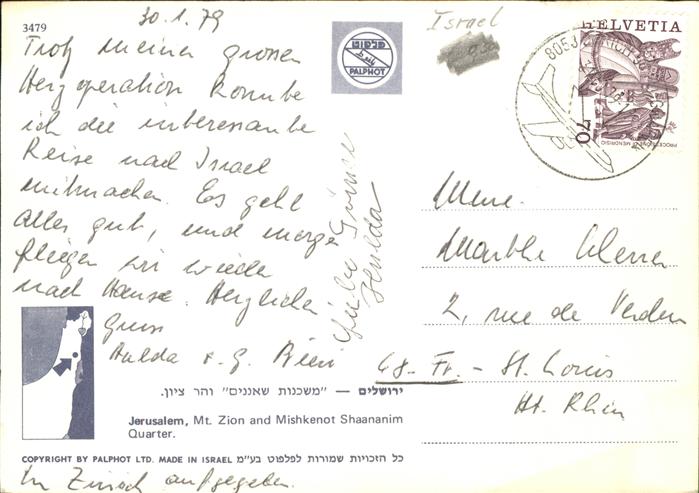 3479
30.1.79
Trotz meiner grossen
Herzoperation konnte
ich die interessante
Reise nach Israel
mitmachen. Es geht
alles gut, und morgen
fliegen wir wieder
nach Hause. Herzlichen
Gruss
Hulda
Hulda
פלפוט
PALPHOT
Israel
HELVETIA
70
PROCESSIONE DI MENDRISIO
8058
Mme.
Marthe
2, rue de Verdun
68. Fr. - St. Louis
Ht. Rhin
ירושלים — "משכנות שאננים" והר ציון.
Jerusalem, Mt. Zion and Mishkenot Shaananim
Quarter.
COPYRIGHT BY PALPHOT LTD. MADE IN ISRAEL כל הזכויות שמורות לפלפוט בע"מ
In Zürich aufgegeben.